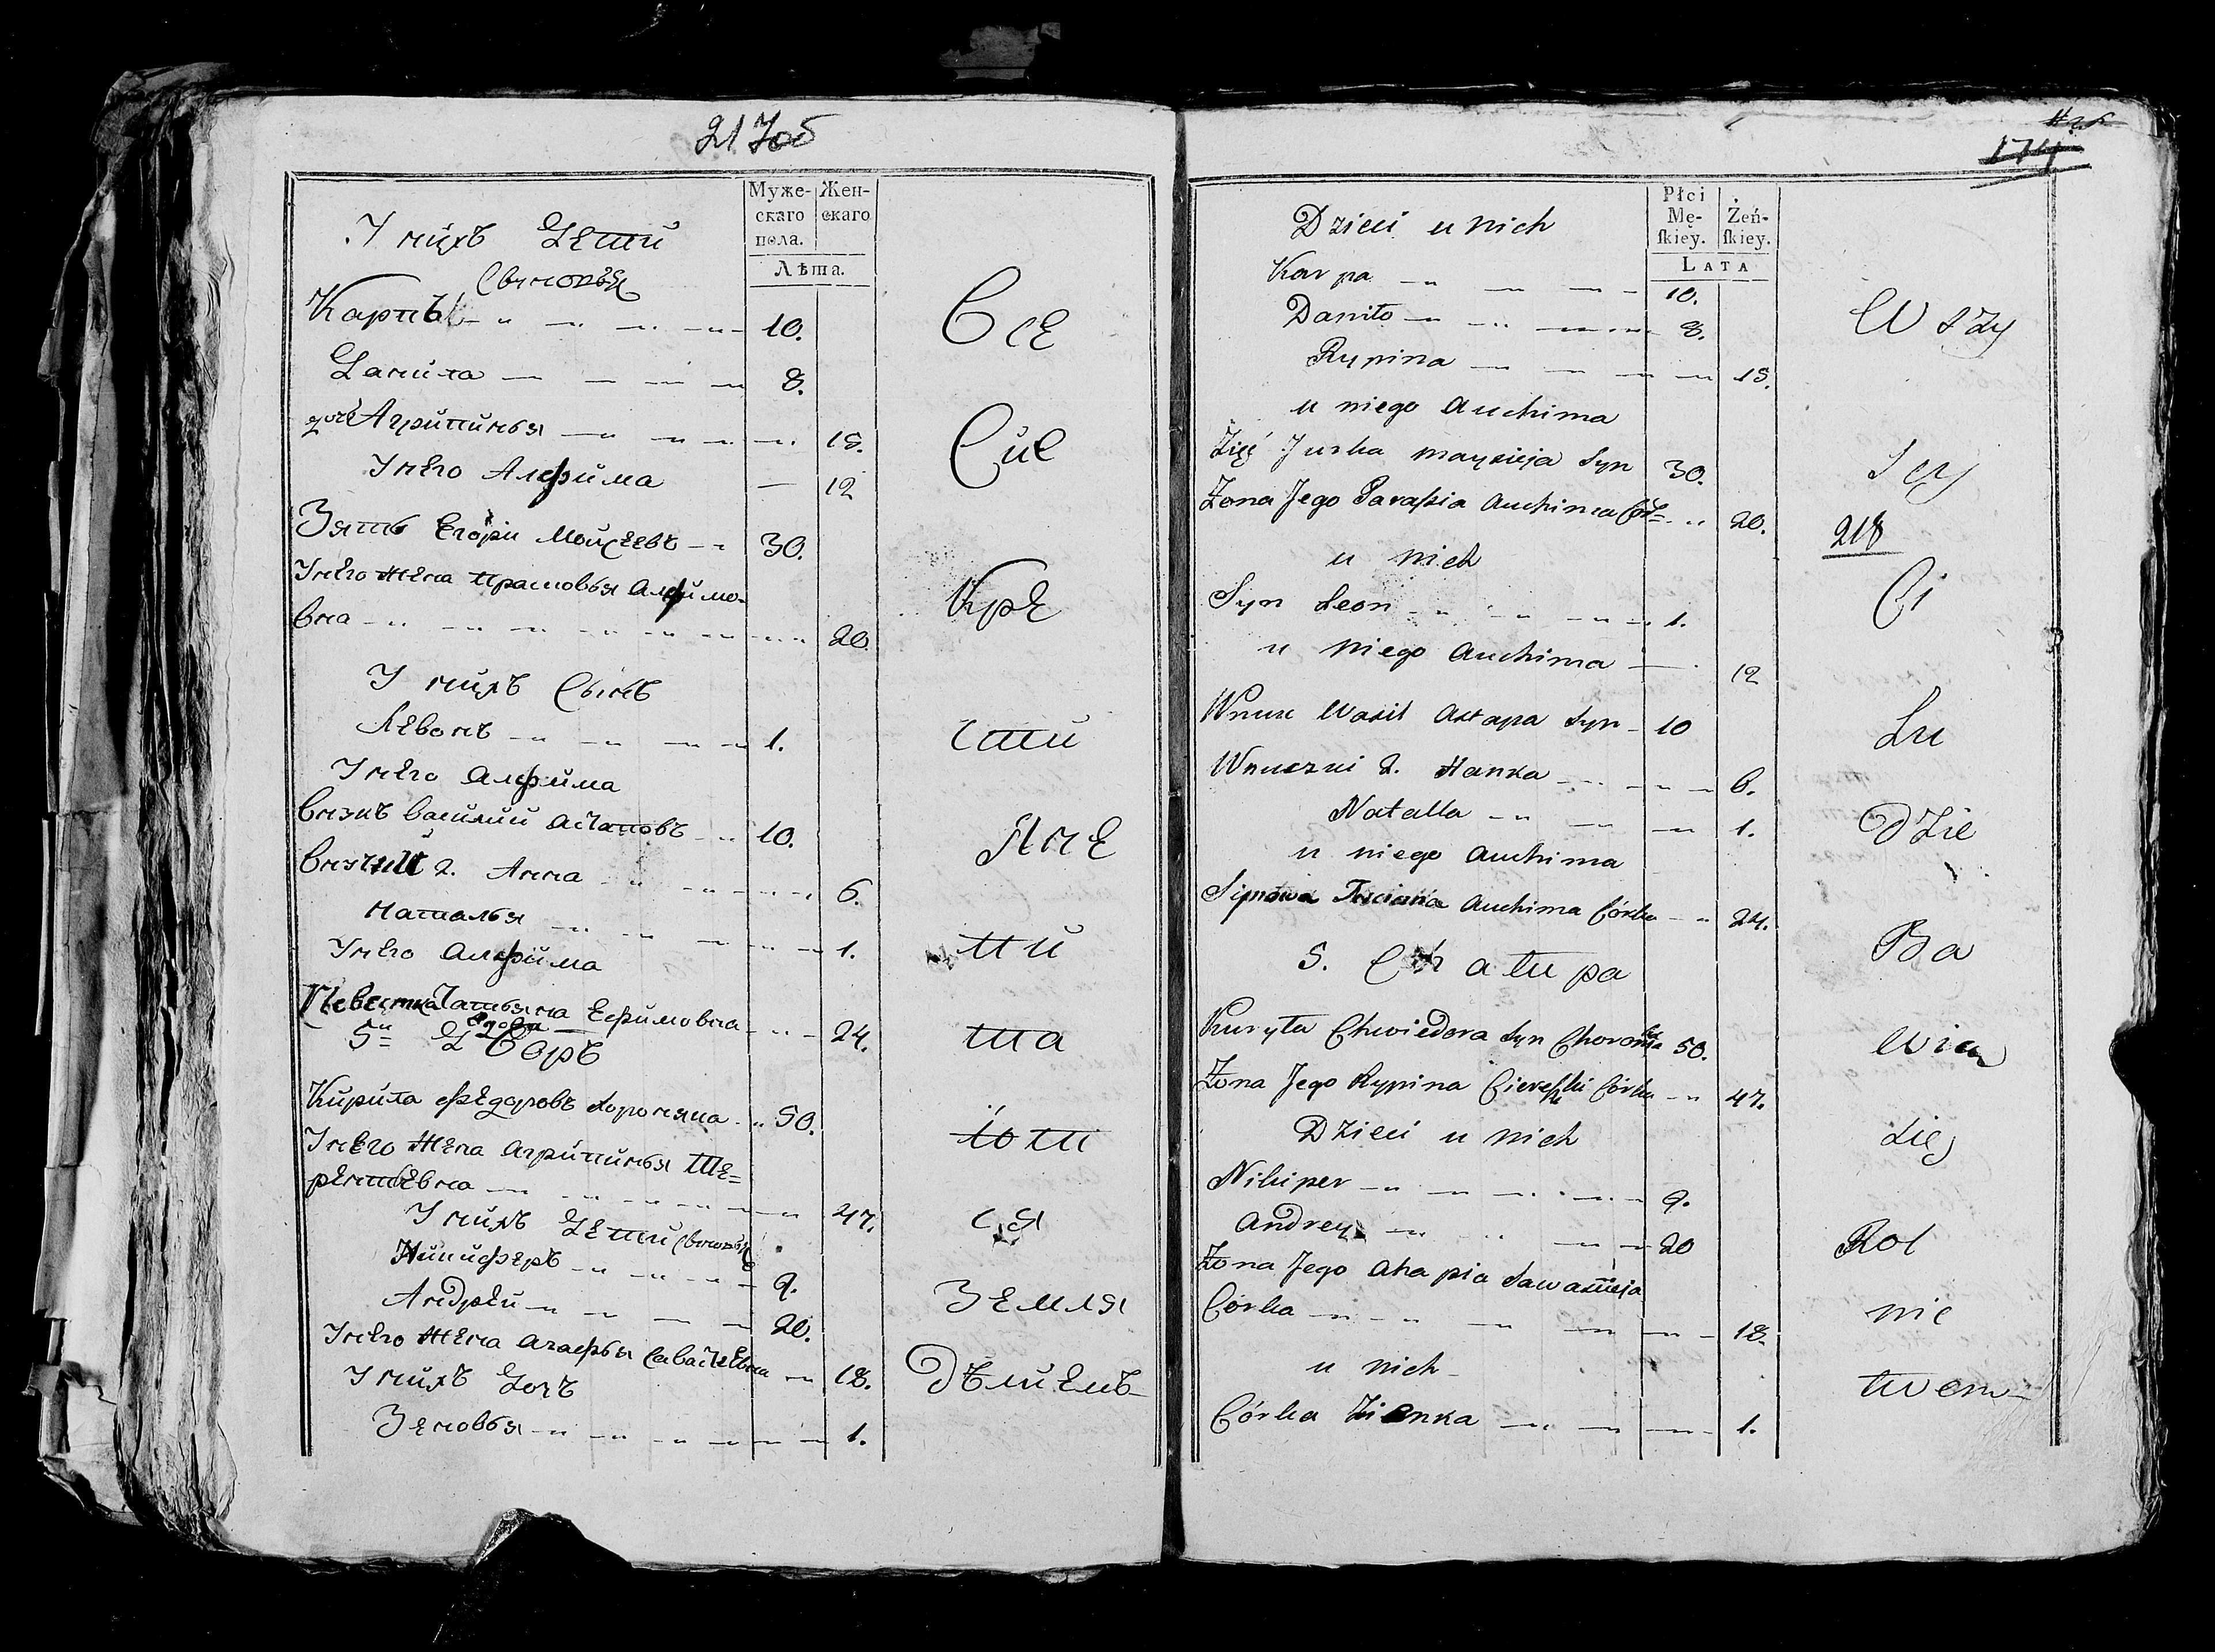 217об
Муже-
скаго
пола.
Жен-
скаго
Лѣта.
У нихъ Дети
Сыновья
Карпъ 10.
Данила 8.
дочь Агрипинья 18.
У него Анфима 12
Зять Егори Моисеевъ 30.
У него жена Прасковья Анфимо-
вна 20.
У нихъ Сынъ
Левонъ 1.
У него Анфима
Внукъ Василий Астаповъ 10.
Внучки 2. Анна 6.
Наталья 1.
У него Анфима
Невестка Татьяна Ефимовна 24.
вдова
5й Дворъ
Кирила Федоровъ Хороняка 50.
У него жена Агрипинья Те-
рентьевна 47.
У нихъ Дети Сыновья
Никиферъ 9.
Андрей 20.
У него жена Агафья Савастеевна 18.
У нихъ Дочь
Зеновья 1.
Все
Сие
Кре
сти
яне
пи
та
ют
ся
земля
дѣлиемъ
174
Płci
Mę-
skiey.
Żeń-
skiey.
LATA
Dzieci u nich
Karpa 10.
Daniło 8.
Rypina 18.
u niego Auchima
Zięć Jurka Maysieja Syn 30.
Żona Jego Paraska Auchima Cór= 20.
u nich
Syn Leon 1.
u niego Auchima 12
Wnuk Wasil Astapa Syn 10
Wnuczki 2. Hanka 6.
Natalla 1.
u niego Auchima
Synowa Taciana Auchima Córka 24.
5. Chałupa
Kuryła Chwiedora Syn 50.
Żona Jego Rypina Córka 47.
Dzieci u nich
Nikiper 9.
Andrey 20
Żona Jego Ahapia Sawasticja
Córka 18.
u nich
Córka Zienka 1.
Wszy
scy
218
Ci
Lu
dzie
Ba
wią
się
Rol
nic
twem